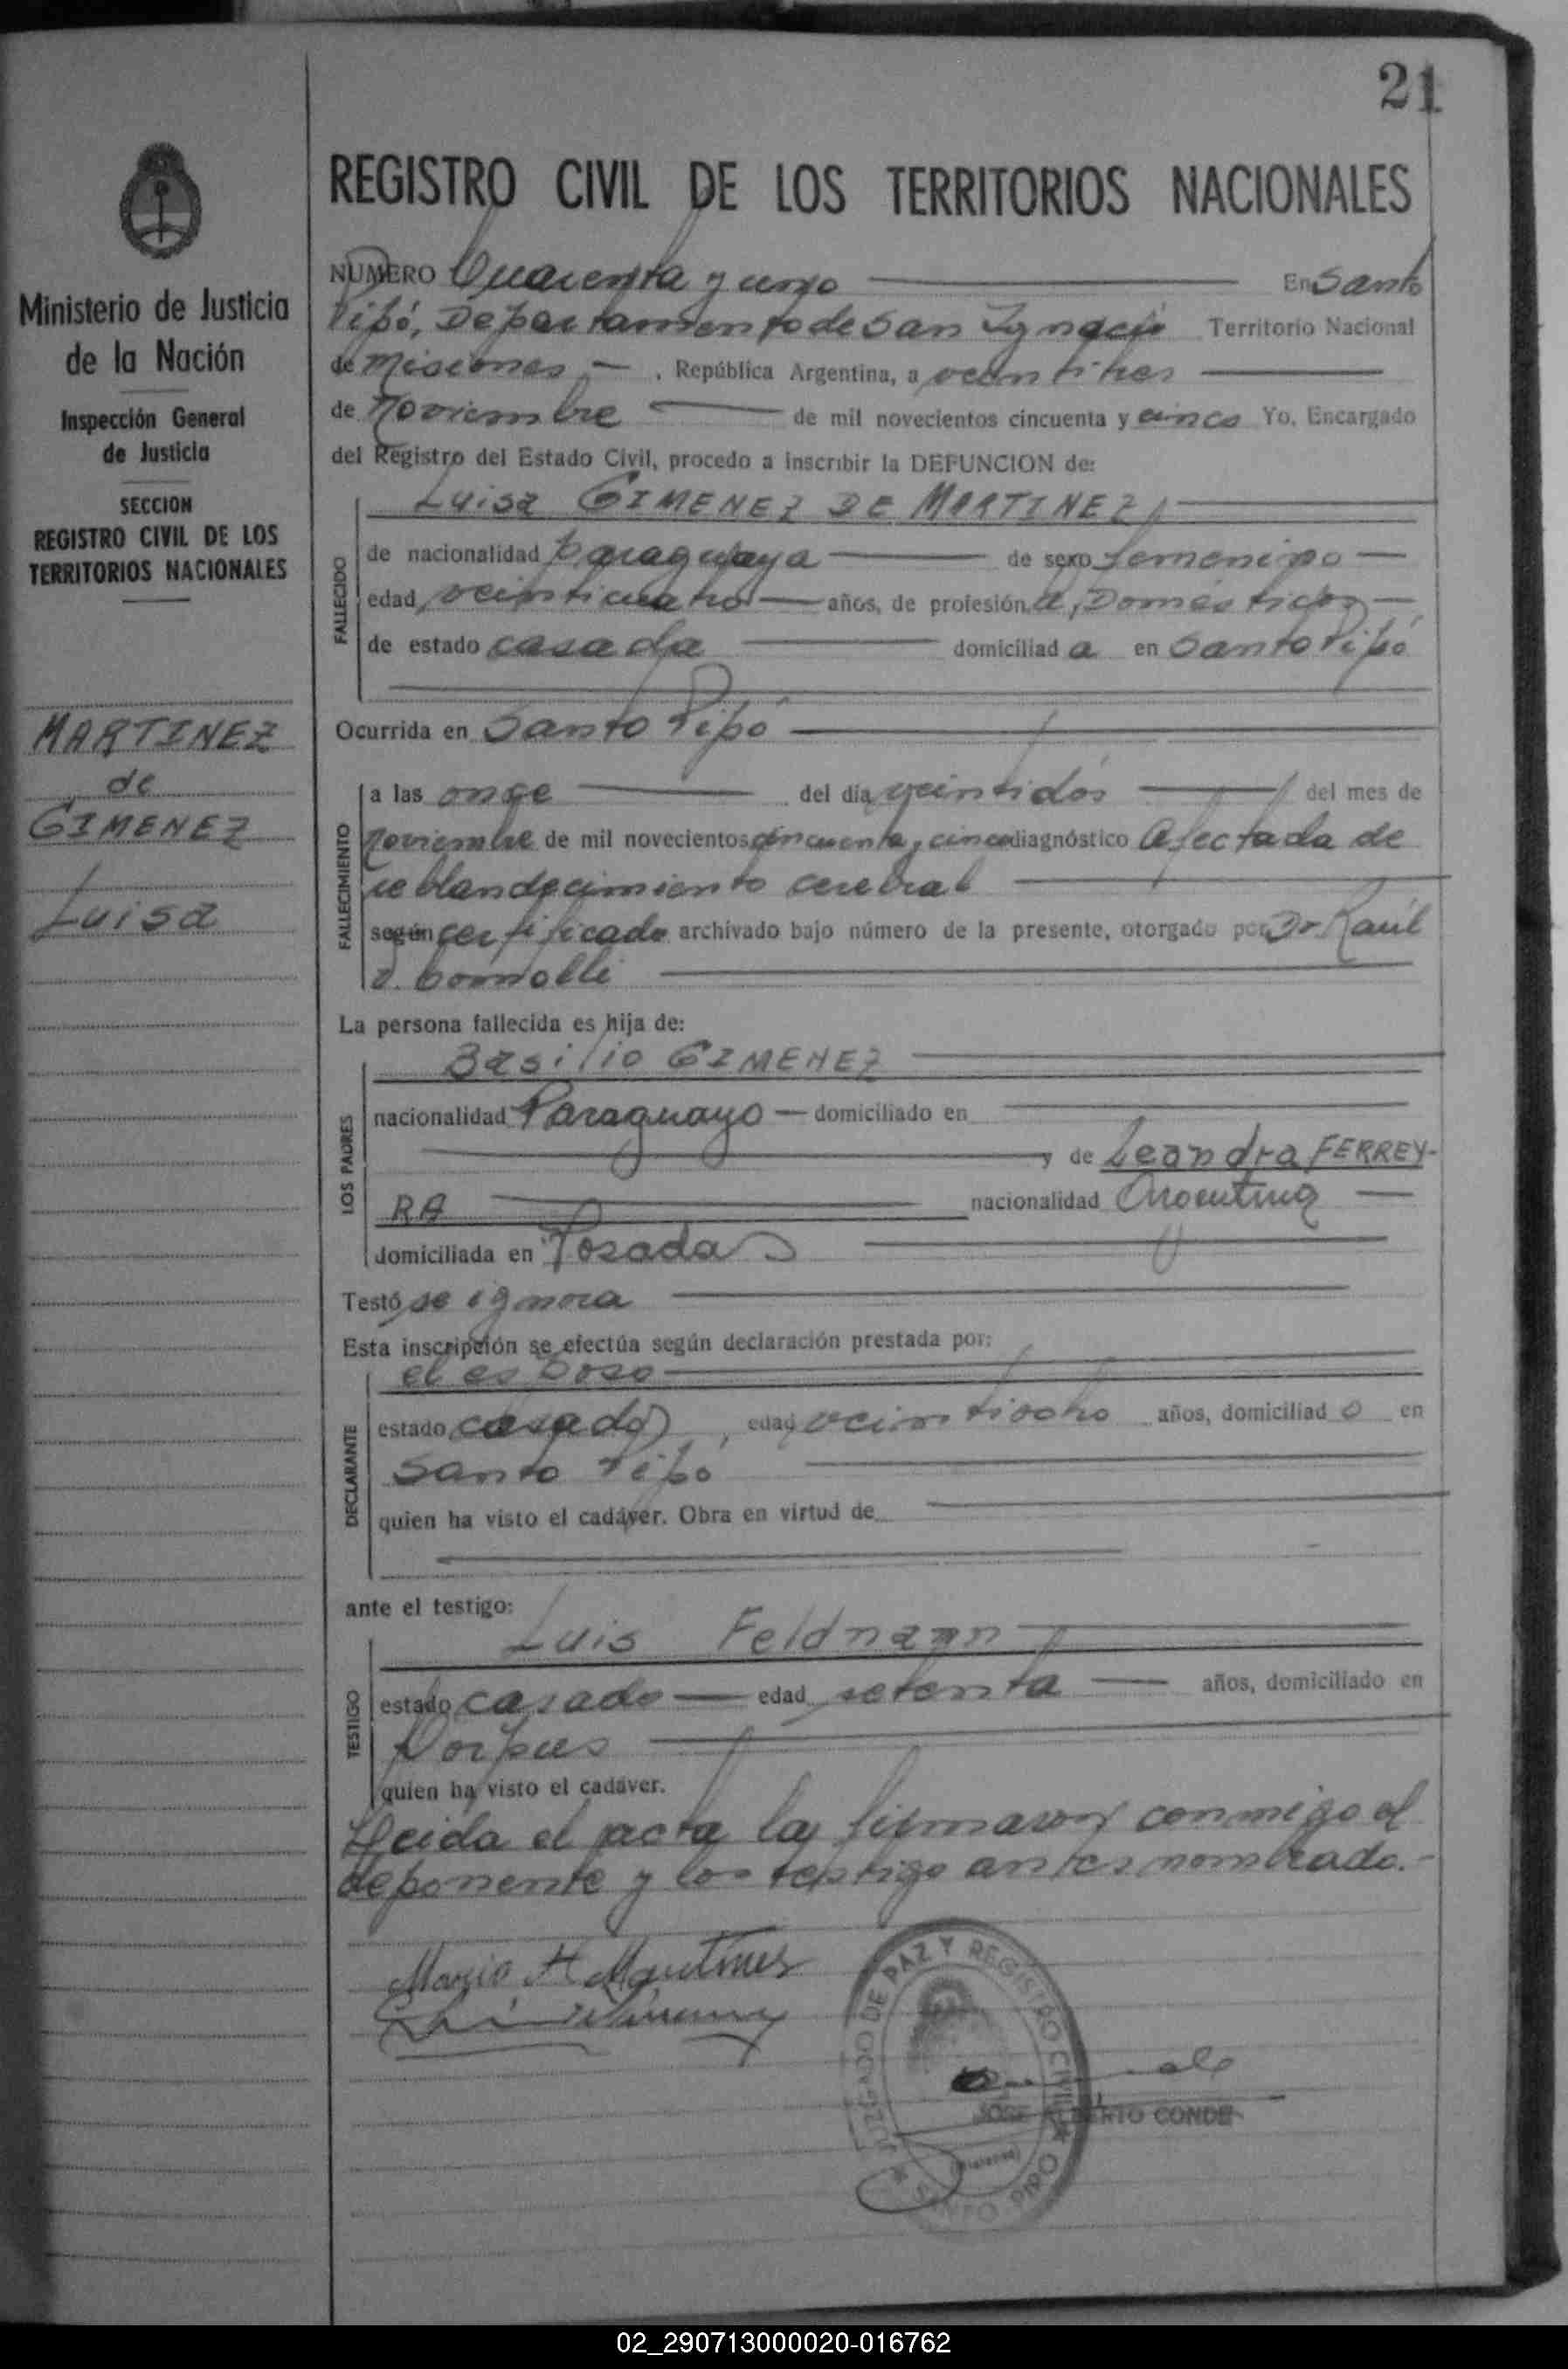 21
REGISTRO CIVIL DE LOS TERRITORIOS NACIONALES
Ministerio de Justicia
de la Nación
Inspección General
de Justicia
SECCION
REGISTRO CIVIL DE LOS
TERRITORIOS NACIONALES
MARTINEZ
de
GIMENEZ
Luisa
NUMERO Cuarenta y uno En Santo
Pipó, Departamento de San Ygnacio Territorio Nacional
de Misiones — , República Argentina, a veintitres
de Noviembre de mil novecientos cincuenta y cinco Yo, Encargado
del Registro del Estado Civil, procedo a inscribir la DEFUNCION de:
Luisa GIMENEZ DE MARTINEZ
FALLECIDO
de nacionalidad paraguaya de sexo femenino —
edad veinticuatro — años, de profesión Q. Domésticos —
de estado casada domiciliad a en Santo Pipó
Ocurrida en Santo Pipó
FALLECIMIENTO
a las onze del día veintidós del mes de
Noviembre de mil novecientos cincuenta y cinco diagnóstico Afectada de
reblandecimiento cerebral
según certificado archivado bajo número de la presente, otorgado por Dr Raúl
La persona fallecida es hija de:
Basilio GIMENEZ
LOS PADRES
nacionalidad Paraguayo — domiciliado en
y de Leandra FERREY-
RA nacionalidad Argentina —
domiciliada en Posadas
Testó se ignora
Esta inscripción se efectúa según declaración prestada por:
el esposo
DECLARANTE
estado casado , edad veintiocho años, domiciliad o en
Santo Pipó
quien ha visto el cadáver. Obra en virtud de
ante el testigo:
Luis Feldmann
TESTIGO
estado casado — edad setenta — años, domiciliado en
Corpus
quien ha visto el cadáver.
Leida el acta la firmaron conmigo el
deponente y los testigo antes nombrado.-
Mario H Martines
JUZGADO DE PAZ Y REGISTRO CIVIL
SANTO PIPO
(Misiones)
JOSE ALBERTO CONDE
02_290713000020-016762